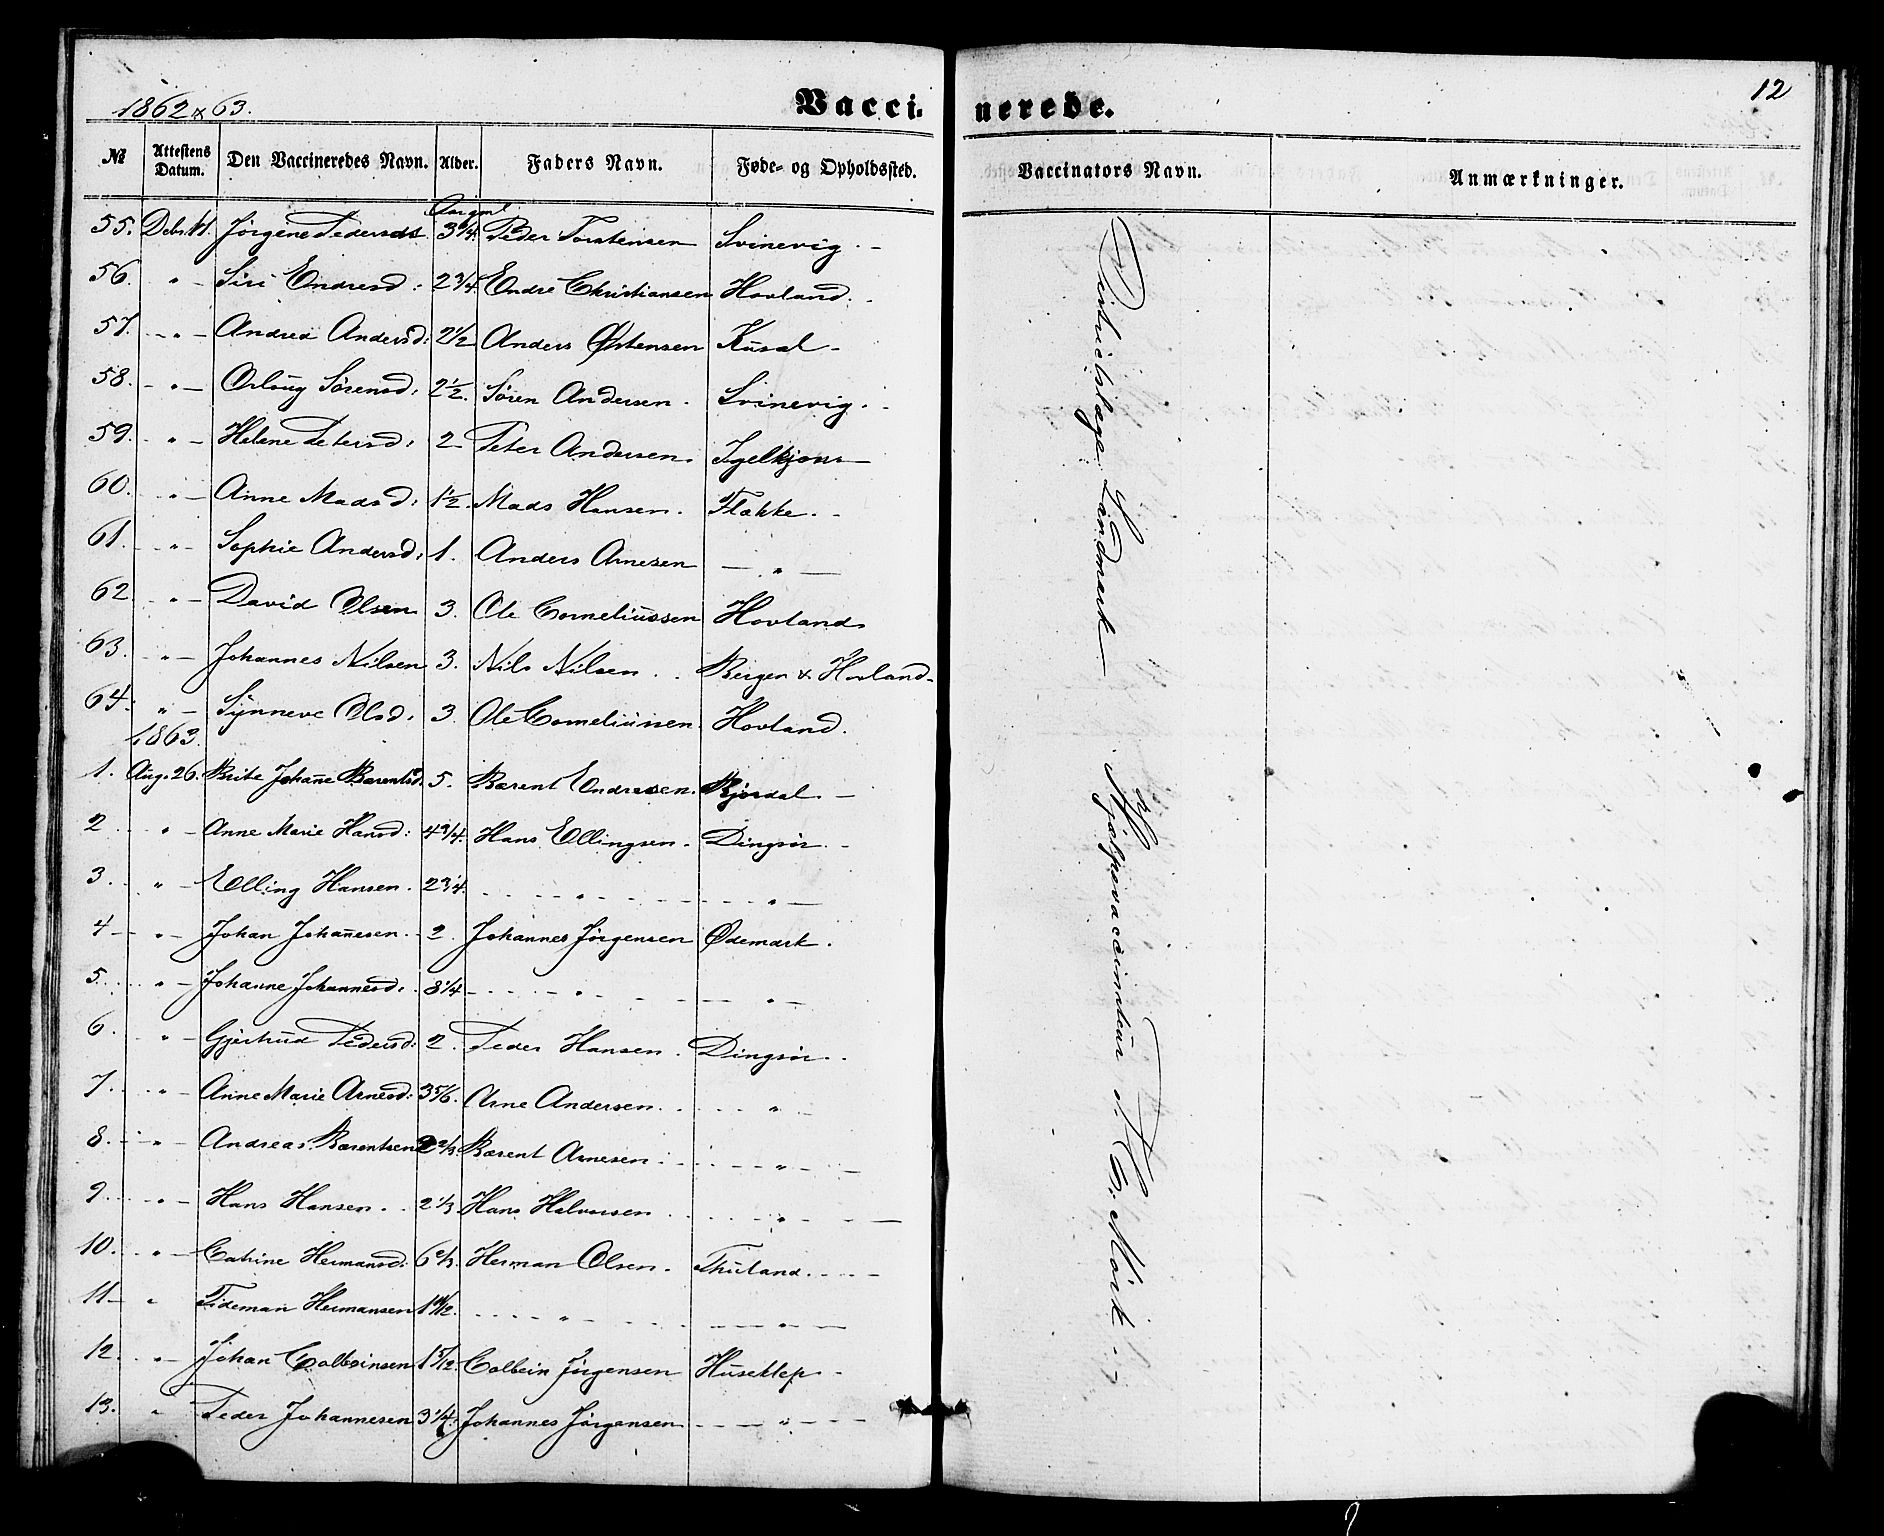 1862 & 63.
Vaccinerede.
12
№ Attestens Datum. Den Vaccineredes Navn. Alder. Faders Navn. Føde- og Opholdssted. Vaccinators Navn. Anmærkninger.
Aargml.
55. Debr. 11. Jørgine Pedersdt. 3 3/4. Peder Torstensen Svinevig. -
56. " - Siri Endresd: 2 3/4. Endre Christiansen Hovland. -
57. - " - Andrea Andersd: 2 1/2 Anders Østensen Kusal -
58. - " - Orloug Sørensd: 2 1/2. Søren Andersen. Svinevig. -
59. - " - Helene Petersd: 2 Peter Andersen. Igelkjøn -
60. - " - Anne Madsd: 1 1/2. Mads Hansen. Flække. -
61. - " - Sophie Andersd: 1. Anders Arnesen - " -
62 - " - David Olsen 3. Ole Corneliussen Hovland.
63. - " - Johannes Nilsen 3. Nils Nilsen. Bergen & Hovland.
64. " - Synneve Olsd: 3. Ole Corneliussen. Hovland.
1863.
1. Aug. 26. Brite Johanne Barentsd. 5. Barent Endresen. Bjørdal. -
2 " - Anne Marie Hansd: 4 3/4. Hans Ellingsen. Dingsør. -
3. " - Elling Hansen. 2 3/4. - " - - " -
4 - " - Johan Johannesen. 2. Johannes Jørgensen Ødemark.
5. " - Johanne Johannesd. 8 1/4 - " - - " -
6. " - Gjertrud Pedersd: 2. Peder Hansen. Dingsør.
7. " - Anne Marie Arnesd: 3 5/6. Arne Andersen. - " -
8. - " - Andreas Barentsen 2 2/3 Barent Arnesen - " -
9. " - Hans Hansen. 2 1/3. Hans Halvorsen - " -
10. " - Catrine Hermansd: 6 2/3. Herman Olsen. Thuland. -
11 - " Tideman Hermansen 1 11/12. - " - - " -
12. " - Johan Colbeinsen 1 5/12. Colbein Jørgensen Huseklep -
13. " Peder Johannesen 3 1/4. Johannes Jørgensen - " -
Districtslæge Landmark
& Hjælpevaccinateur P. C. Mörk -